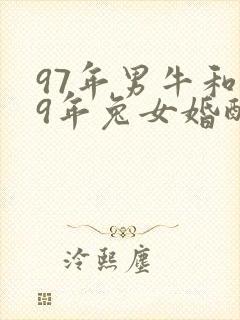 97年男牛和
9年兔女婚配
冷熙尘